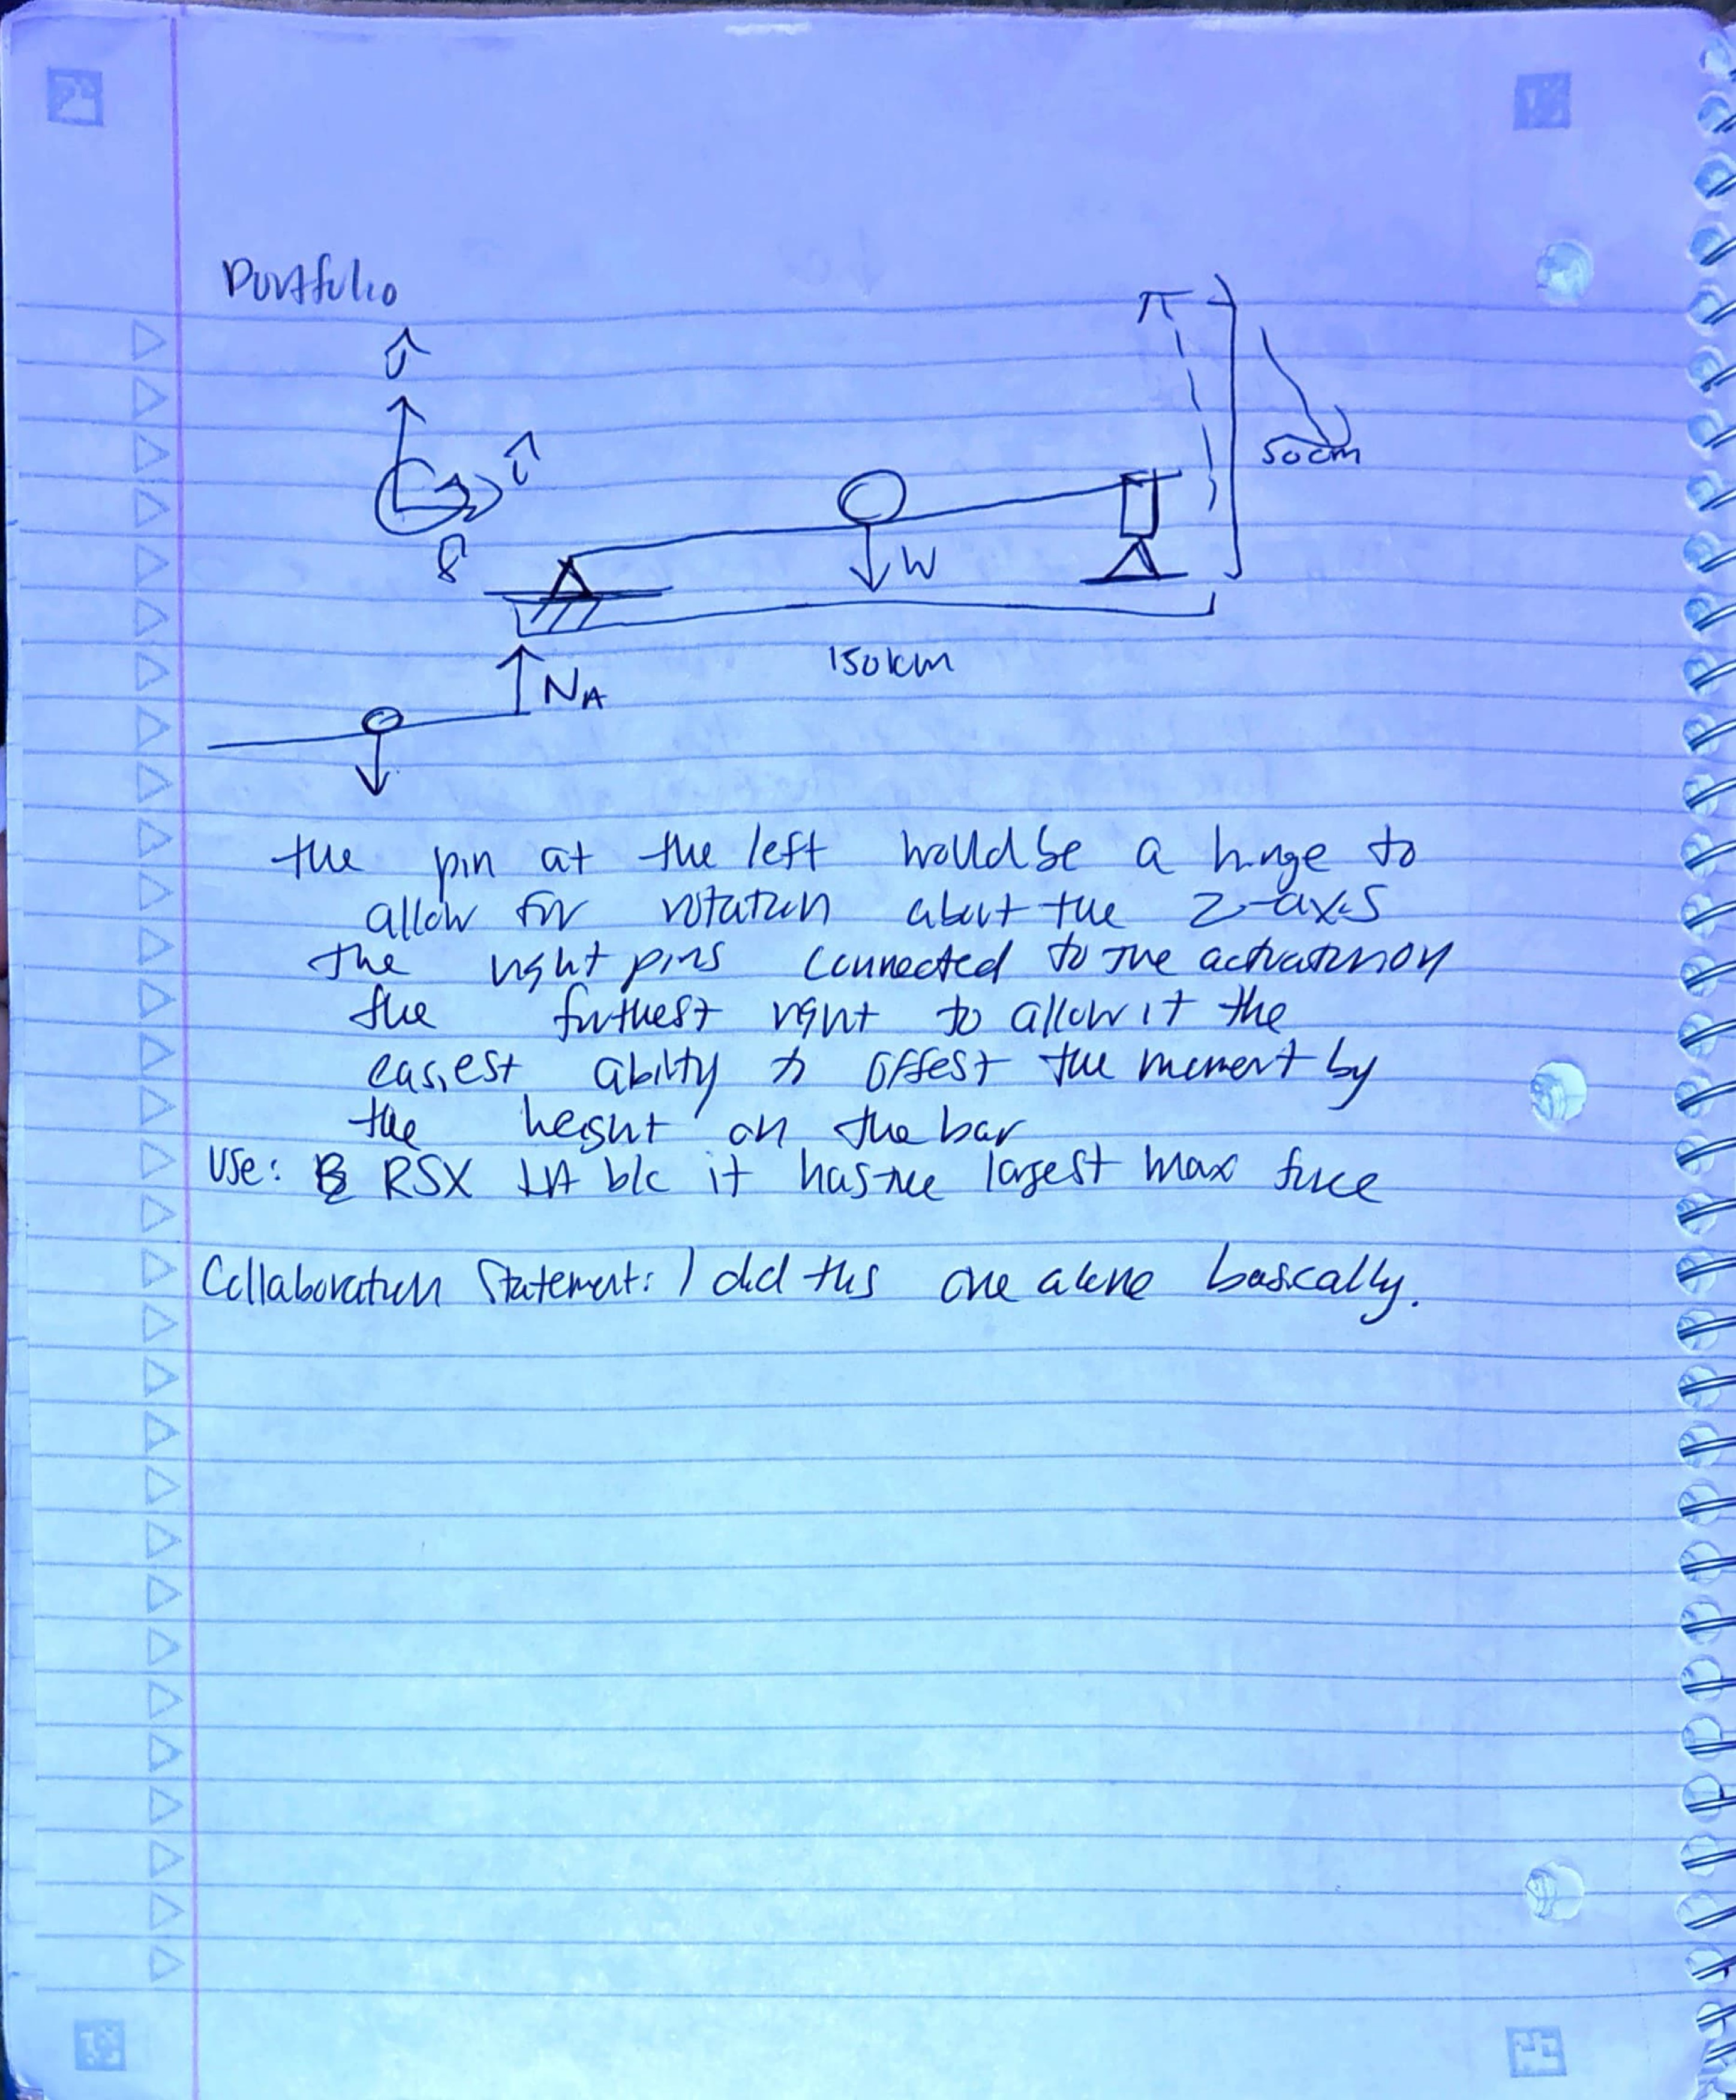 Portfolio
ĵ
î
50cm
W
150km
NA
the pin at the left would be a hinge to
allow for rotation about the z-axis
The right pins connected to the actuation on
the furthest right to allow it the
easiest ability to offest the moment by
the height on the bar
Use: RSX LA b/c it has the largest max force
Collaboration Statement: I did this one alone basically.